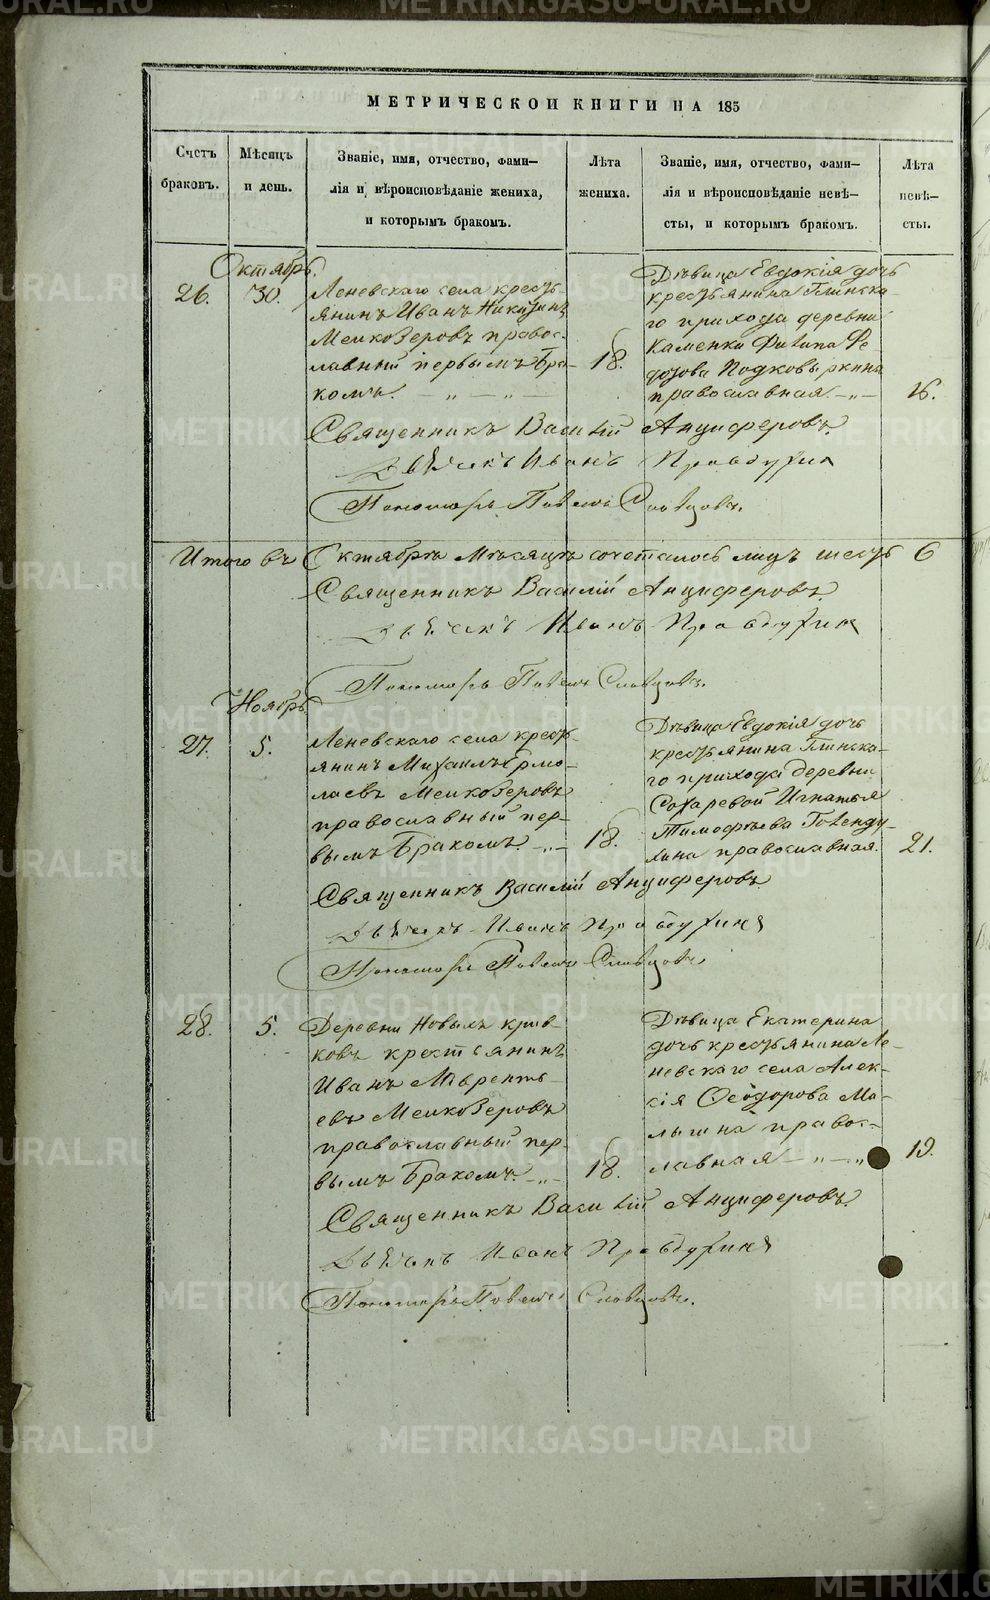 МЕТРИЧЕСКОИ КНИГИ НА 185
Счетъ браковъ.
Мѣсяцъ и день.
Званіе, имя, отчество, фами-
лія и вѣроисповѣданіе жениха,
и которымъ бракомъ.
Лѣта жениха.
Званіе, имя, отчество, фами-
лія и вѣроисповѣданіе невѣ-
сты, и которымъ бракомъ.
Лѣта невѣ-
сты.
Октябрь.
26. 30.
Леневскаго села кресть-
янинъ Иванъ Никитинъ
Мелкозеровъ право-
лавный первымъ Бра-
комъ.
18.
Дѣвица Евдокія дочь
крестьянина Глинска-
го прихода деревни
Каменки Филипа Фе
дозова Подковыркина
православная
16.
Священникъ Василій Анциферовъ.
Дьячекъ Иванъ Правдухин
Пономарь Павелъ Словцовъ.
Итого въ Октябрѣ Мѣсяцѣ сочеталось лицъ шесть 6
Священникъ Василій Анциферовъ.
Дьячекъ Иванъ Правдухин
Пономарь Павелъ Словцовъ.
Ноябрь.
27. 5.
Леневскаго села кресть-
янинъ Михаилъ Ермо-
лаевъ Мелкозеровъ
православный пер-
вымъ Бракомъ.
18.
Дѣвица Евдокія дочь
крестьянина Глинска-
го прихода деревни
Сохаревой Игнатья
Тимофѣева Голенду-
хина православная.
21.
Священникъ Василій Анциферовъ
Дьячекъ Иванъ Правдухинъ
Пономарь Павелъ Словцовъ
28. 5.
Деревни Новыхъ крив-
ковъ крестьянинъ
Иванъ Лаврентье-
евъ Мелкозеровъ
православный пер-
вымъ Бракомъ.
18.
Дѣвица Екатерина
дочь крестьянина Ле-
невскаго села Алек-
сія Ѳеодорова Ма-
лыгина право-
лавная
19.
Священникъ Василій Анциферовъ.
Дьячекъ Иванъ Правдухинъ
Пономарь Павелъ Словцовъ.
METRIKI.GASO-URAL.RU